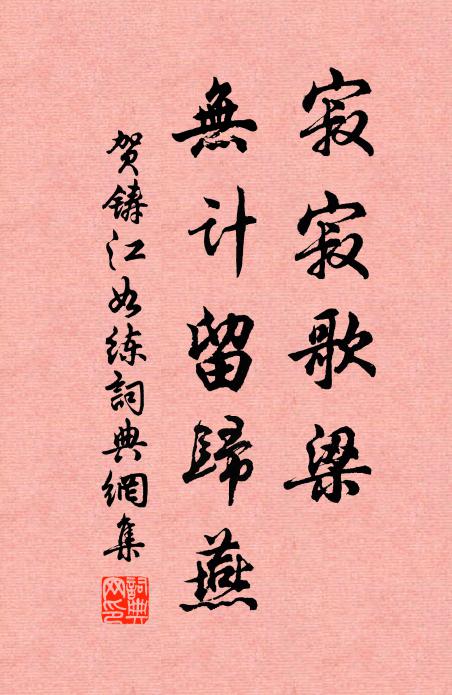 寂寂歌梁
無计留歸燕
贺铸江如练詞典網集
詞典網印